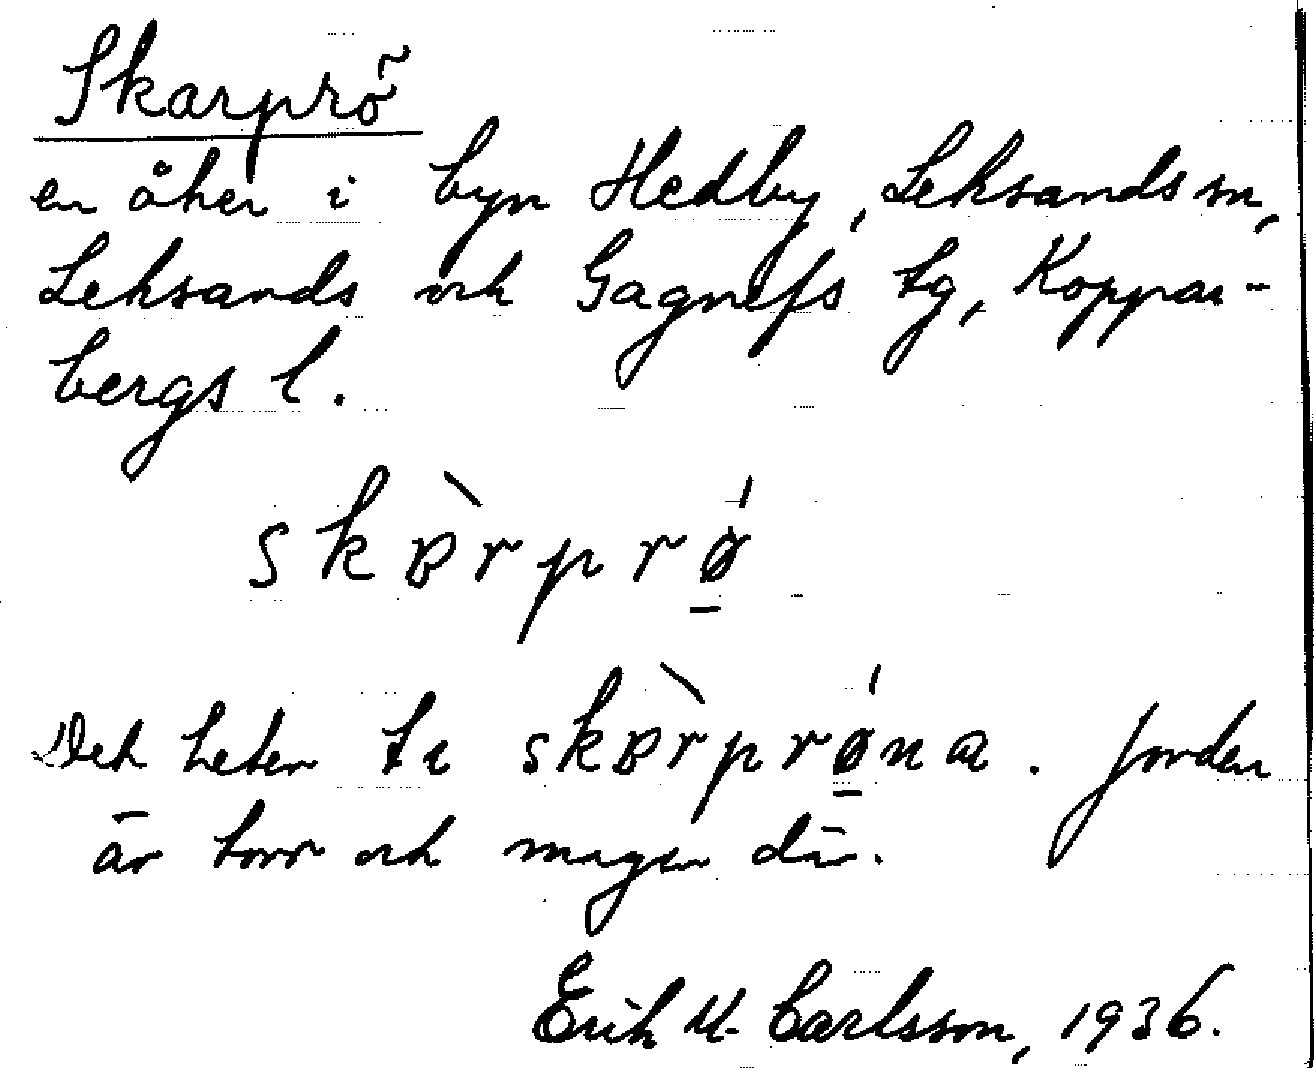 Skarprö̃
en åker i byn Hedby, Leksands sn,
Leksands och Gagnefs tg, Koppar-
bergs l.
skɒ̀rprǿ̱
Det heter ti skɒ̀rprǿ̱na. Jorden
är torr och mager där.
Erik M. Carlsson, 1936.